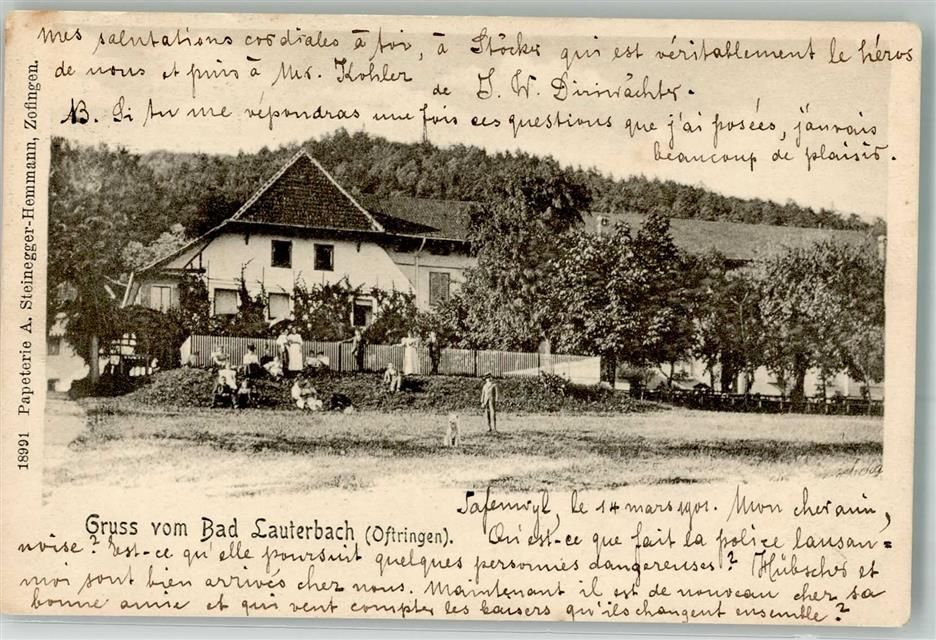 mes salutations cordiales à toi, à Stöcker qui est véritablement le héros
de nous et puis à Mr. Kohler
de J. W. Dirrwächter.
NB. Si tu me répondras une fois ces questions que j'ai posées, j'aurais
beaucoup de plaisir.
18991 Papeterie A. Steinegger-Hemmann, Zofingen.
Gruss vom Bad Lauterbach (Oftringen).
Safenwyl, le 14 mars 1901. Mon cher ami,
Qu'est-ce que fait la police lausan=
noise? Est-ce qu'elle poursuit quelques personnes dangereuses? Hübscher et
moi sont bien arrivés chez nous. Maintenant il est de nouveau chez sa
bonne amie et qui veut compter les baisers qu'ils changent ensemble?